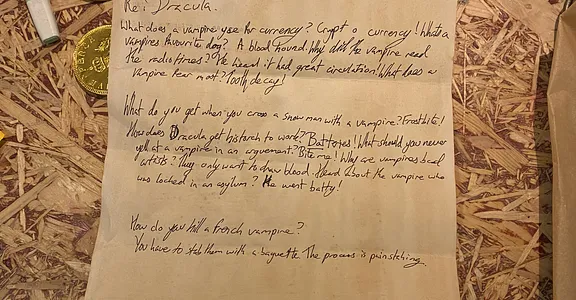 Re: Dracula.
What does a vampire use for currency? Crypt o currency! Whats a
vampires favourite dog? A blood hound. Why did the vampire read
the radio times? He heard it had great circulation! What does a
vampire fear most? Tooth decay!
What do you get when you cross a snowman with a vampire? Frostbite!
How does Dracula get his torch to work? Batteries! What should you never
yell at a vampire in an arguement? Bite me! Why are vampires bad
artists? They only want to draw blood. Heard about the vampire who
was locked in an asylum? He went batty!
How do you kill a french vampire?
You have to stab them with a baguette The process is painstaking.